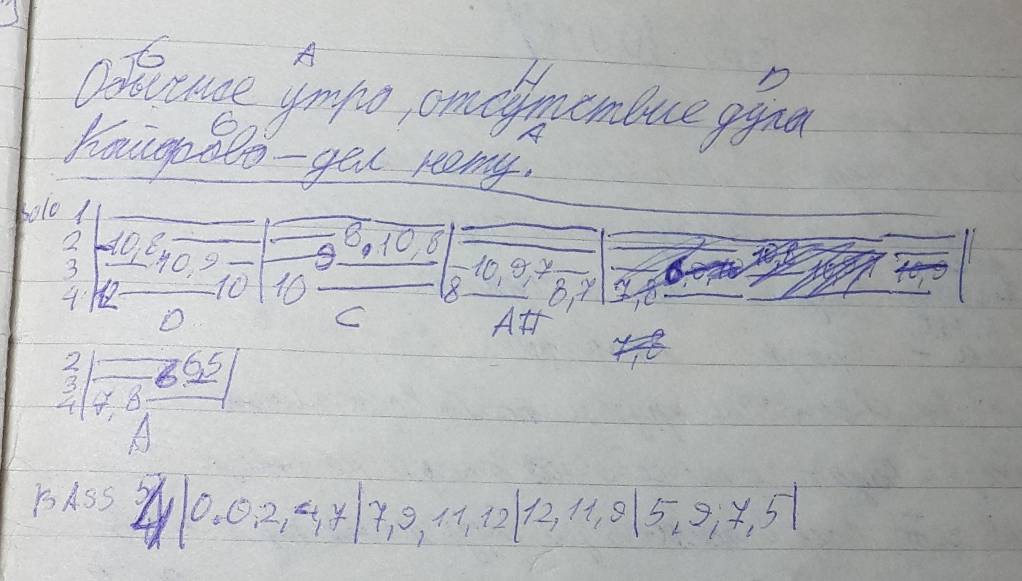 G A H D
Обычное утро, отсутствие дула
G A
Кайфово – дел нету.
Solo 1
2 10,8 8. 10,8
3 10,9 9 10,9,7
4 12 10 10 8 8,7 7,8
D C A#
7,8
2 6,5
3
4 7, 8
A
BASS 4 | 0.0.2,4,7 | 7,9,11,12 | 12,11,9 | 5,9,7,5 |